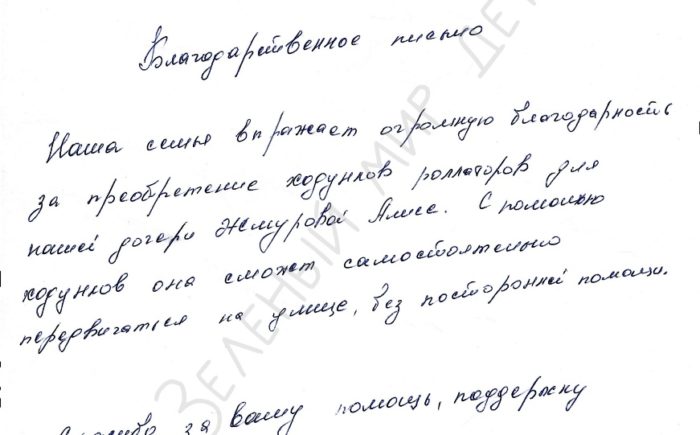 Благодарственное письмо
Наша семья впражает огромную благодарность
за преобретение ходунков роллаторов для
нашей дочери Жмуровой Алисе. С помощью
ходунков она сможет самостоятельно
передвигаться на улице, без посторонней помощи.
Спасибо за вашу помощь, поддержку
ЗЕЛЕНЫЙ МИР ДЕТ